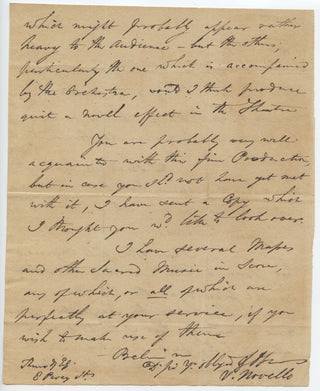 which might probably appear rather
heavy to the Audience – but the others,
particularly the one which is accompanied
by the Orchestra, would I think produce
quit a novel effect in the Theatre
You are probably very well
acquainted with this fine Production
but in case you shd not have yet met
with it, I have sent a Copy which
I thought you wd like to look over.
I have several Masses
and other Sacred Music in Score,
any of which, or all of which are
perfectly at your service, if you
wish to make use of them
Believe me
V. Novello
8 Percy St